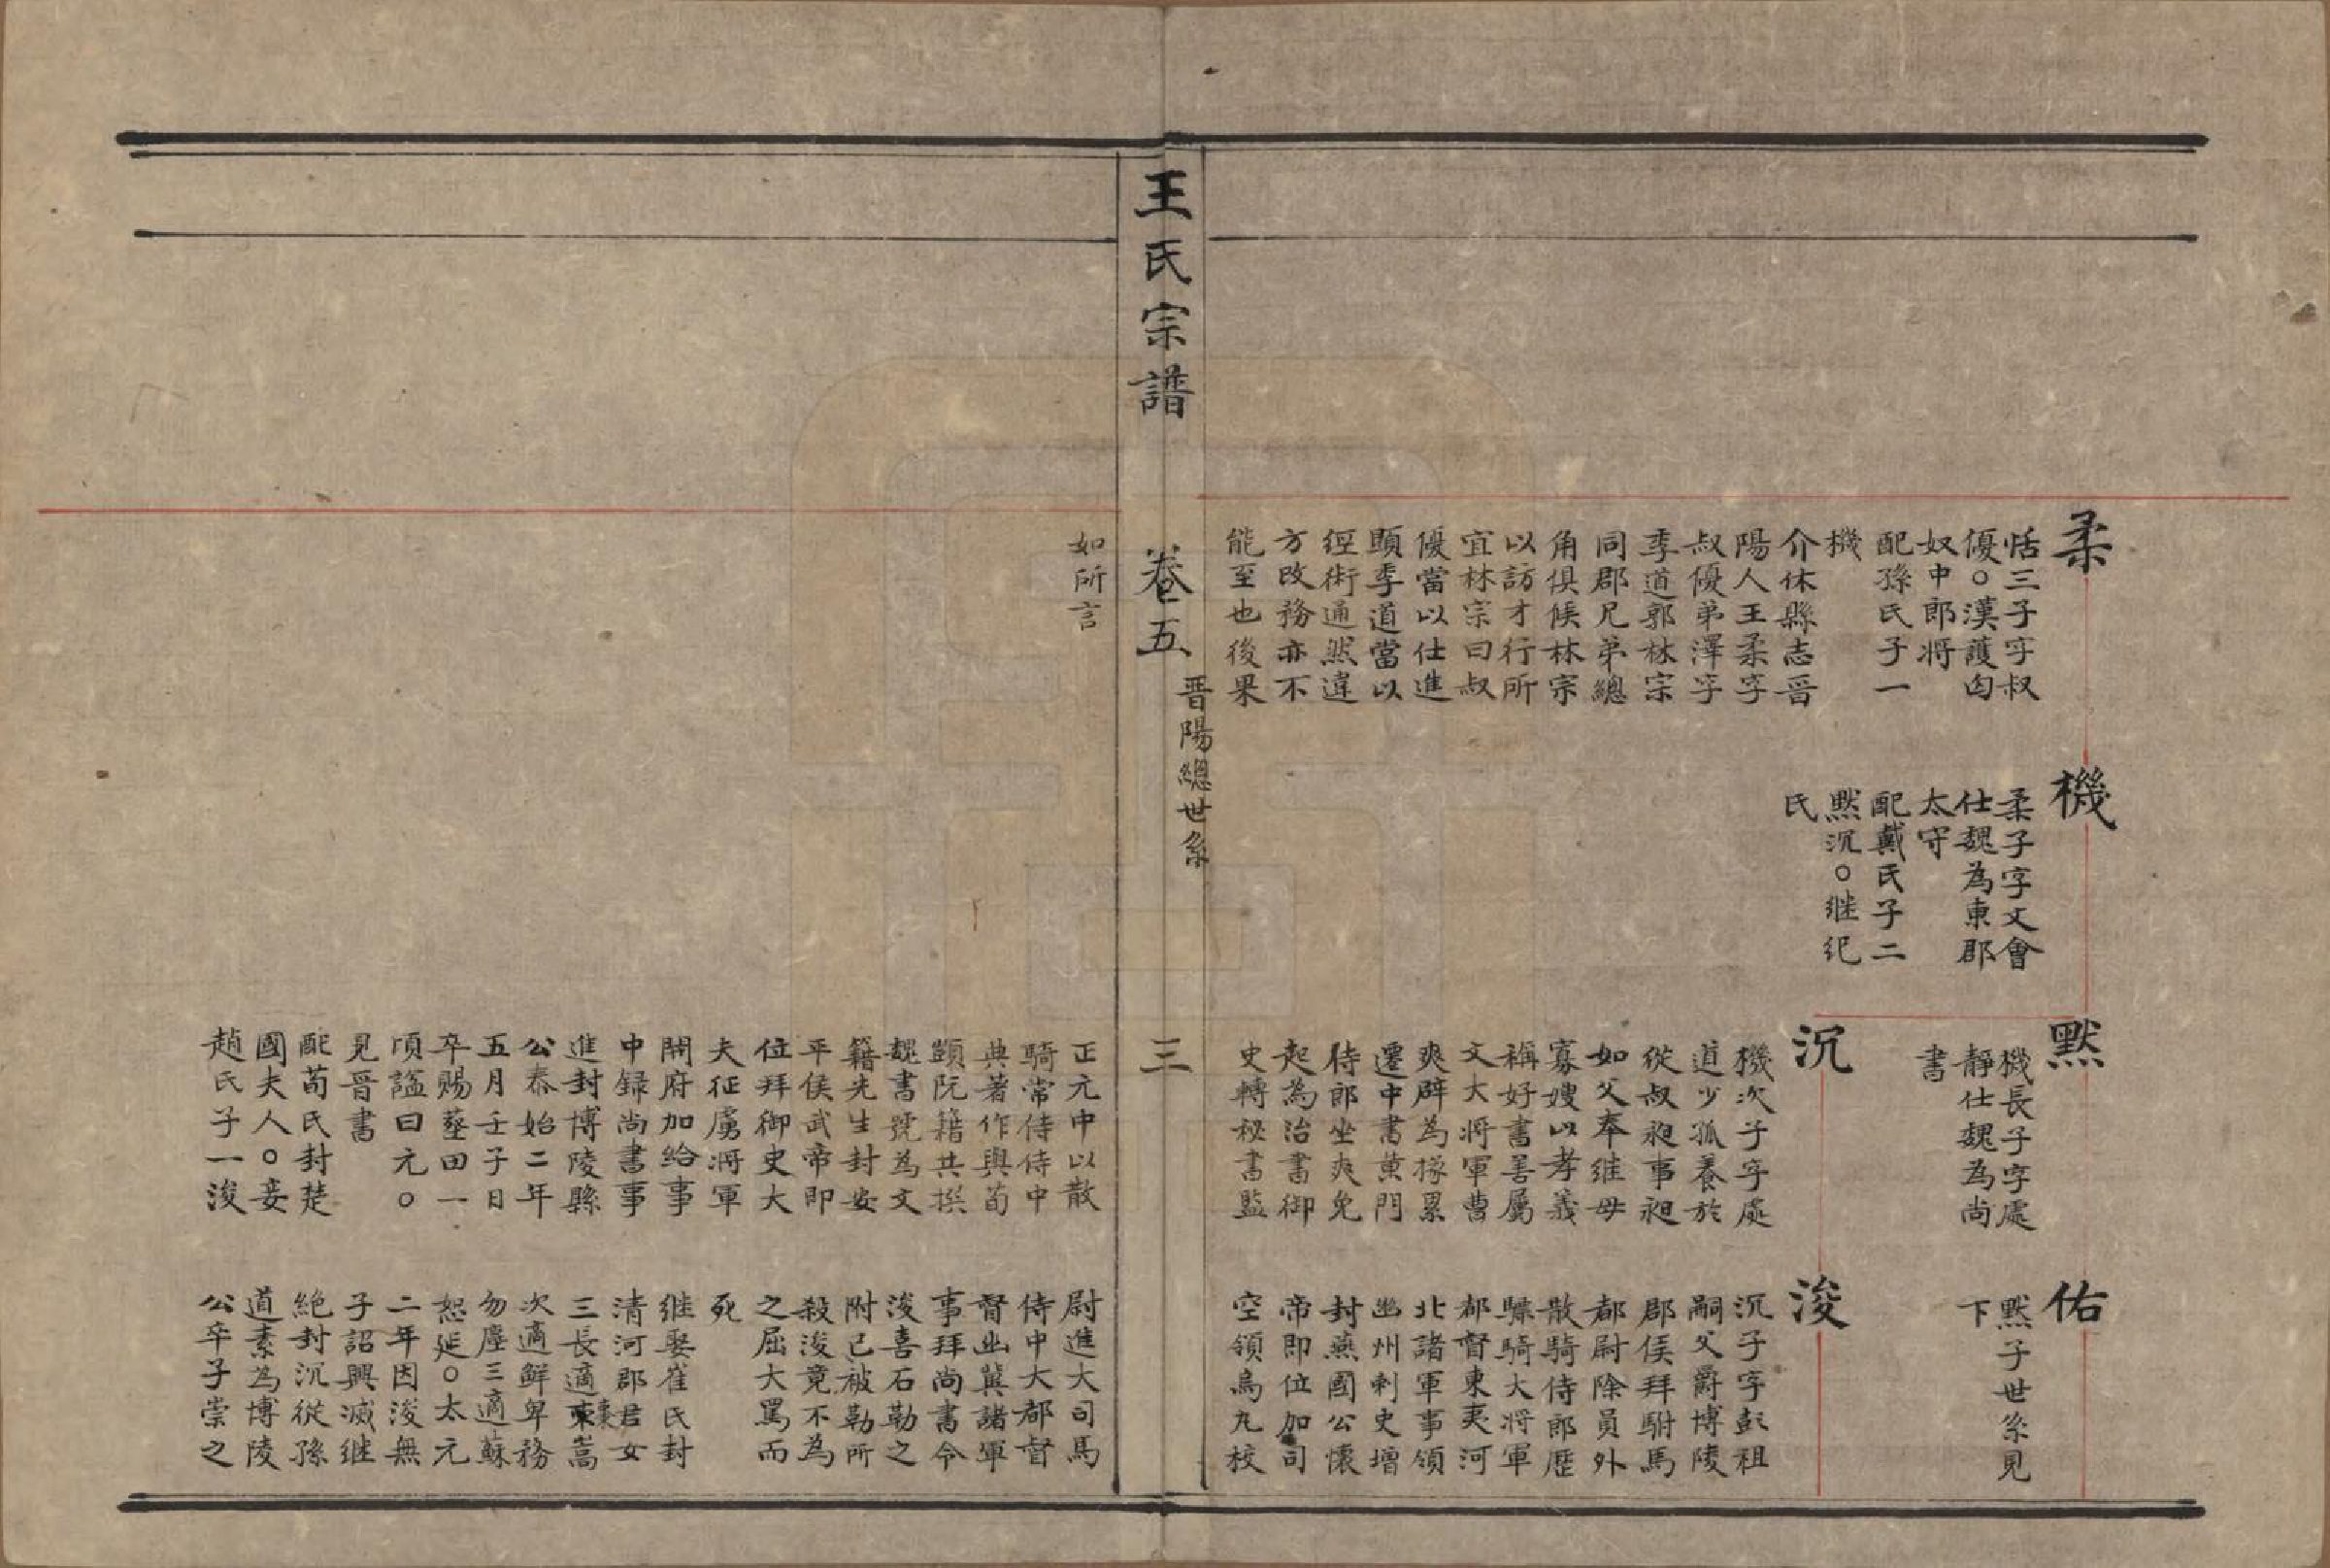 王氏宗譜
卷五
晋陽總世系
三
柔
恬三子字叔
優○漢護匈
奴中郎將
配孫氏子一
機
介休縣志晋
陽人王柔字
叔優弟澤字
季道郭林宗
同郡兄弟總
角俱候林宗
以訪才行所
宜林宗曰叔
優當以仕進
顯季道當以
經術通然違
方改務亦不
能至也後果
如所言
機
柔子字文會
仕魏為東郡
太守
配戴氏子二
黙沉○继纪
氏
黙
機長子字處
靜仕魏為尚
書
沉
機次子字處
道少孤養於
從叔昶事昶
如父奉继母
寡嫂以孝義
稱好書善屬
文大将軍曹
爽辟為掾累
遷中書黄門
侍郎坐爽免
起為治書御
史轉秘書監
正元中以散
騎常侍侍中
典著作與荀
顗阮籍共撰
魏書號為文
籍先生封安
平侯武帝即
位拜御史大
夫征虜將軍
開府加给事
中録尚書事
進封博陵縣
公泰始二年
五月壬子日
卒賜塟田一
頃諡曰元○
見晋書
配荀氏封楚
國夫人○妾
趙氏子一浚
佑
黙子世系見
下
浚
沉子字彭祖
嗣父爵博陵
郡侯拜駙馬
都尉除員外
散騎侍郎歷
驃騎大将軍
都督東夷河
北諸軍事領
幽州刺史增
封燕國公懷
帝即位加司
空領烏九校
尉進大司馬
侍中大都督
督幽冀諸軍
事拜尚書令
浚喜石勒之
附已被勒所
殺浚竟不為
之屈大罵而
死
继娶崔氏封
清河郡君女
三長適東嵩
次適鮮卑務
勿塵三適蘇
恕延○太元
二年因浚無
子詔興滅继
絶封沉從孫
道素為博陵
公卒子崇之